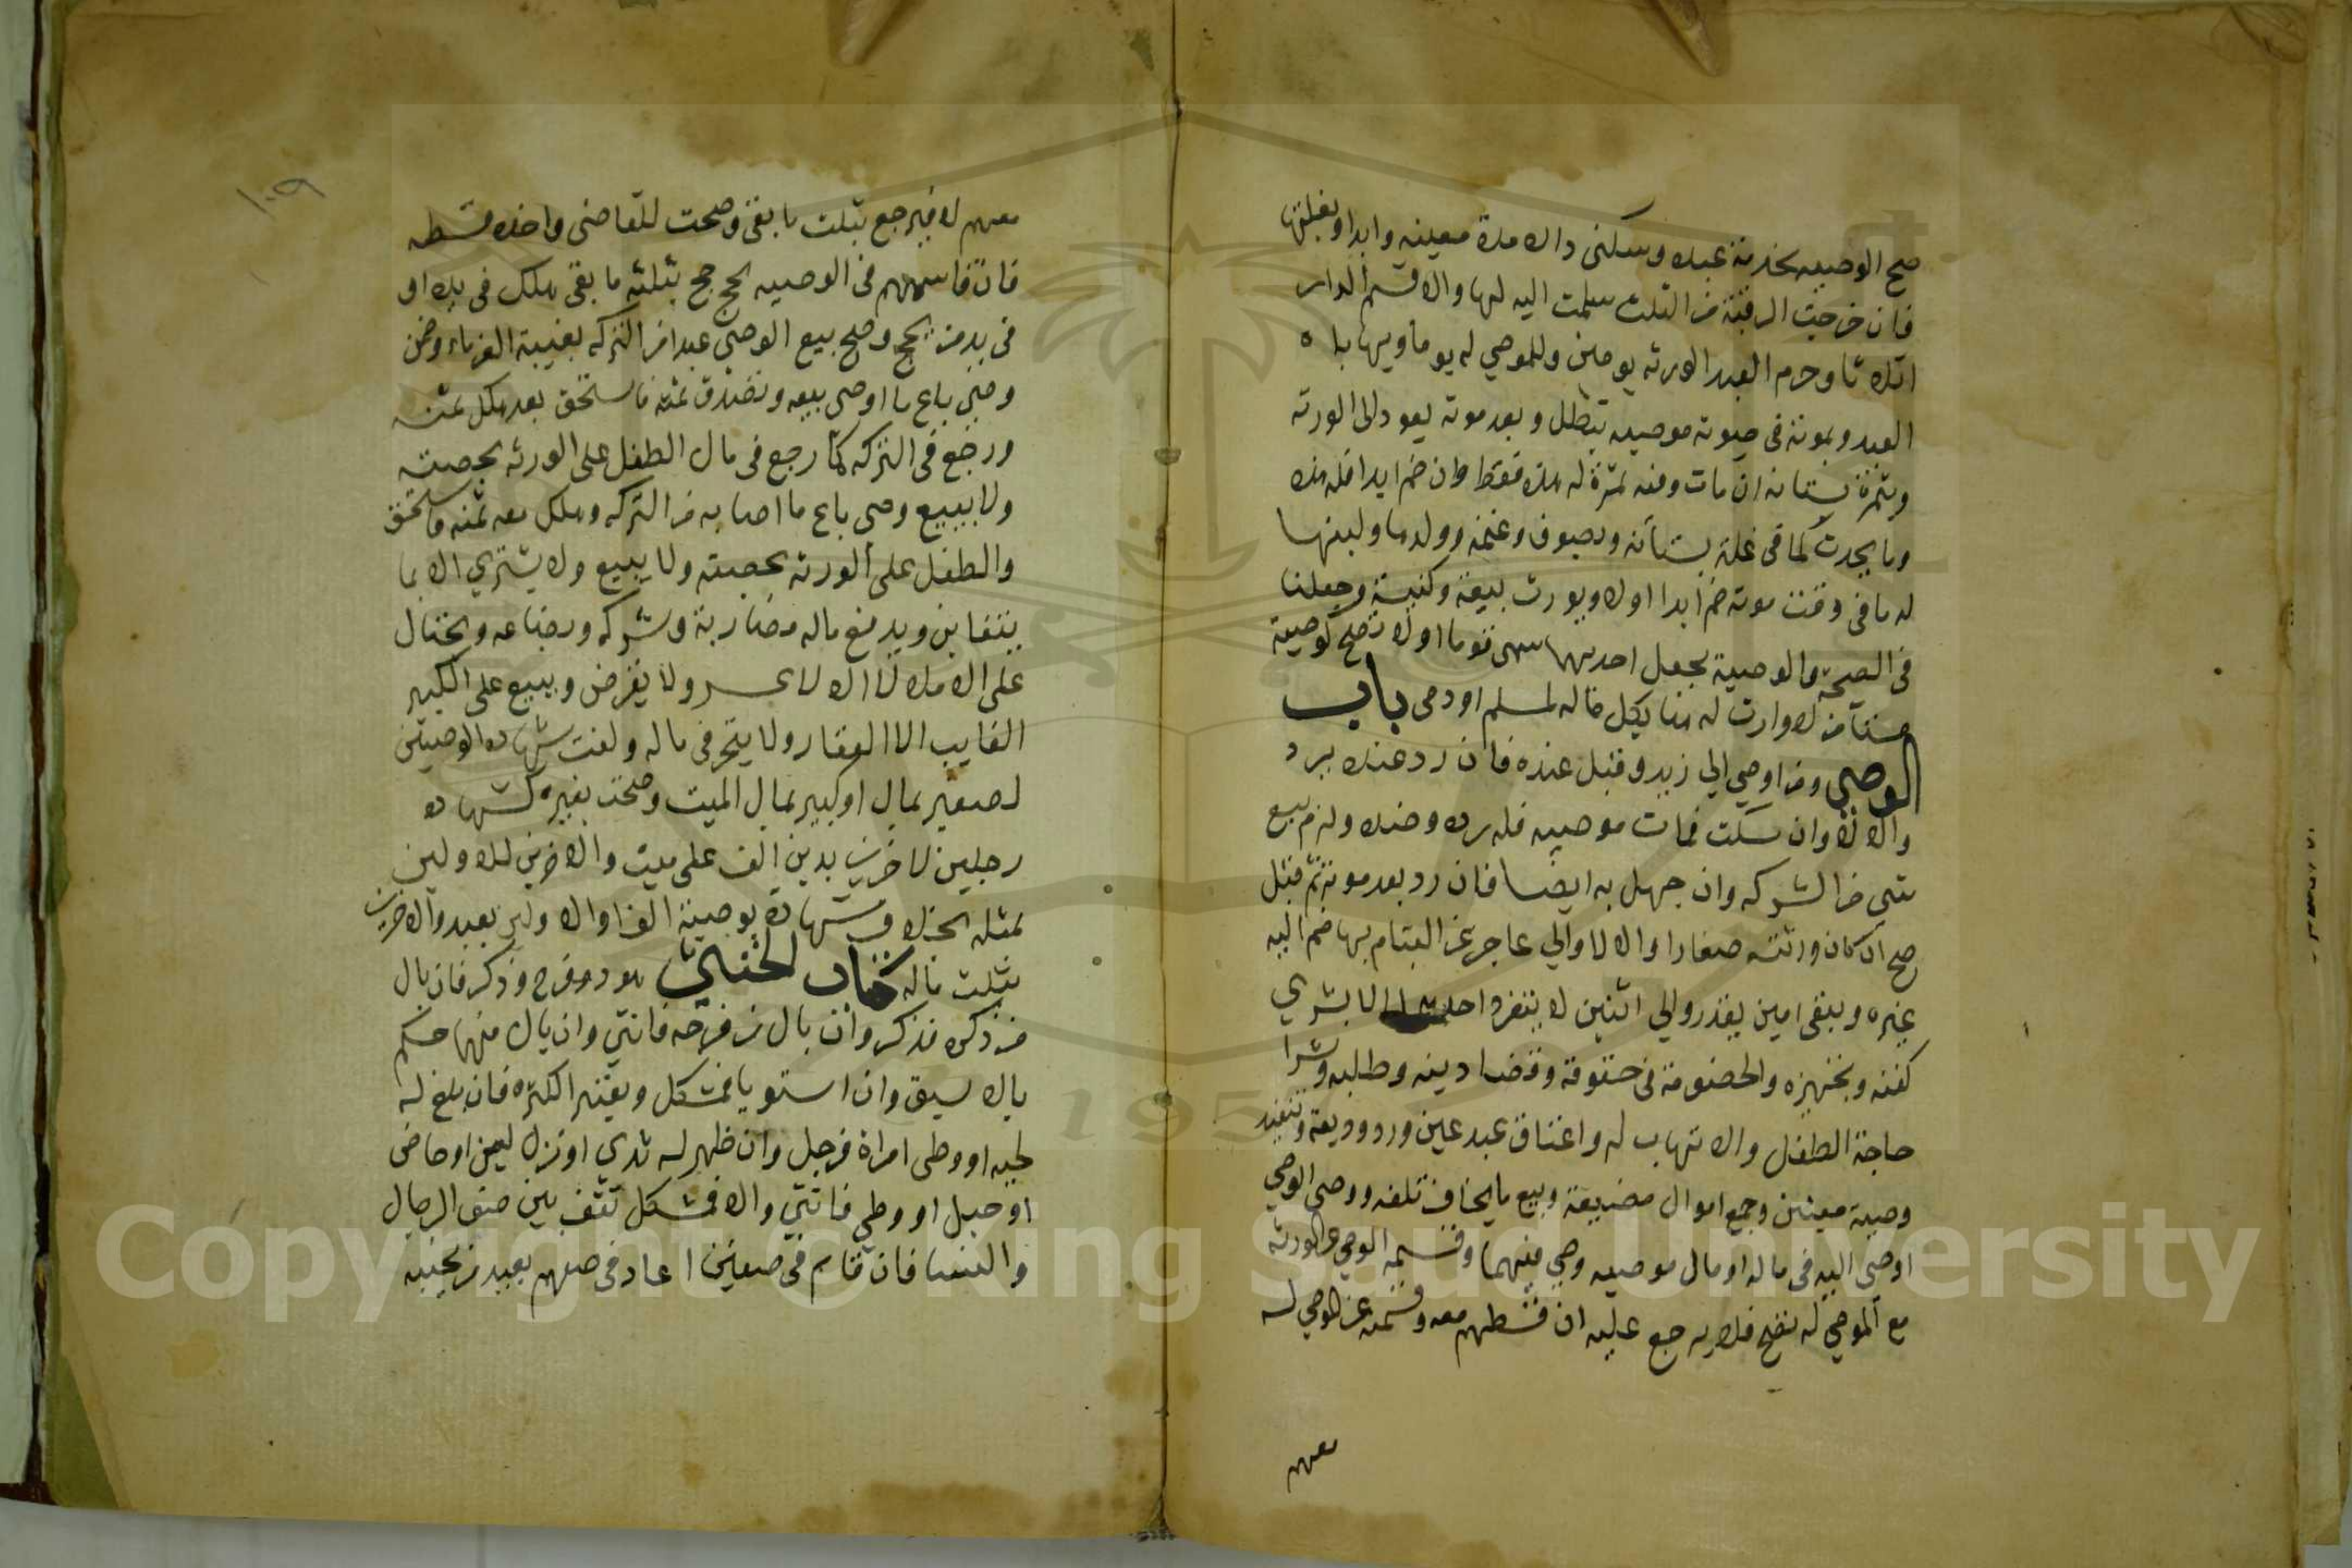 صح الوصيه بخدمة عبده وسكنى داره مدة معينه وابدا وبغلتها
فان خرجت الرقبة من الثلث سلمت اليه لها والا قسم الدار
اثلاثا وخدم العبد الورثه يومين وللموصي له يوما ويهايا ه
العبد وبموته في حيوته موصيه تبطل وبعد موته يعود الى الورثه
وبثمرة بستانه ان مات وفيه ثمرة له هذه فقط وان ضم ابدا فله هذه
وما يحدث كما في غلة بستانه وبصوف وغنمه وولدها ولبنها
له ما في وقت موته ضم ابدا اولا ويورث بيعة وكنيسة وجعلتا
في الصحة والوصية بجعل احديهما سمى قوما اولا تصح كوصية
مستامن لا وارث له هنا بكل ماله لمسلم او ذمى باب
الوصي ومن اوصي الي زيد وقبل عنده فان رد عنده يرد
والا لا وان سكت فمات موصيه فله رده وضده ولزم بيع
شي من التركه وان جهل به ايضا فان رد بعد موته ثم قبل
صح ان كان ورثته صغارا والا لا والي عاجز عن القيام بها ضم اليه
غيره ويبقى امين يقدر والي اثنين لا ينفرد احدهما الا بشري
كفنه وتجهيزه والخصومة في حقوقه وقضا دينه وطلبه وشرا
حاجة الطفل والاتهاب له واعتاق عبد عين ورد وديعة وتنفيذ
وصية معينين وجمع اموال مضيعة وبيع ما يخاف تلفه ووصي الوصي
اوصى اليه في ماله او مال موصيه وصي فيهما وقسمة الوصي عن الورثه
مع الموصي له تصح فلا يرجع عليه ان قسطهم معه وقسمته عن الموصي له
معهم
١٠٩
معهم لا فيرجع بثلث ما بقي وصحت للقاضي واخذه قسطه
فان قاسمهم في الوصيه بحج حج بثلثه ما بقي هلك في يده او
في يد من يحج وصح بيع الوصي عبدا من التركه بغيبة الغرماء وضمن
وصي باع ما اوصي ببيعه وتصدق ثمنه فاستحق بعد هلك ثمنه
ورجع في التركه كما رجع في مال الطفل على الورثه بحصته
ولا يبيع وصي باع ما اصابه من التركه وهلك معه ثمنه فاستحق
والطفل على الورثه بحصته ولا يبيع ولا يشتري الا بما
يتغابن ويدفع ماله مضاربة وشركه وبضاعه ويحتال
على الاملا لا الاعسر ولا يقرض ويبيع على الكبير
الغايب الا العقار ولا يتجر في ماله ولغت شهادة الوصيين
لصغير بمال او كبير بمال الميت وصحت بغيره كشهادة
رجلين لاخرين بدين الف على ميت والاخرين للاولين
بمثله بخلاف شهادة بوصية الف او الاولين بعبد والاخرين
بثلث ماله كتاب الخنثى هو ذو فرج وذكر فان بال
من ذكره فذكر وان بال من فرجه فانثي وان بال منهما حكم
بالاسبق وان استويا فمشكل ولا يعتبر الكثره فان بلغ له
لحيه او وطى امراة فرجل وان ظهر له ثدي او نزل لبن او حاض
او حبل او وطي فانثي والا فمشكل تقف بين صف الرجال
والنسا فان قام في صفهن اعاد في صفهم يعيد من بجنبيه